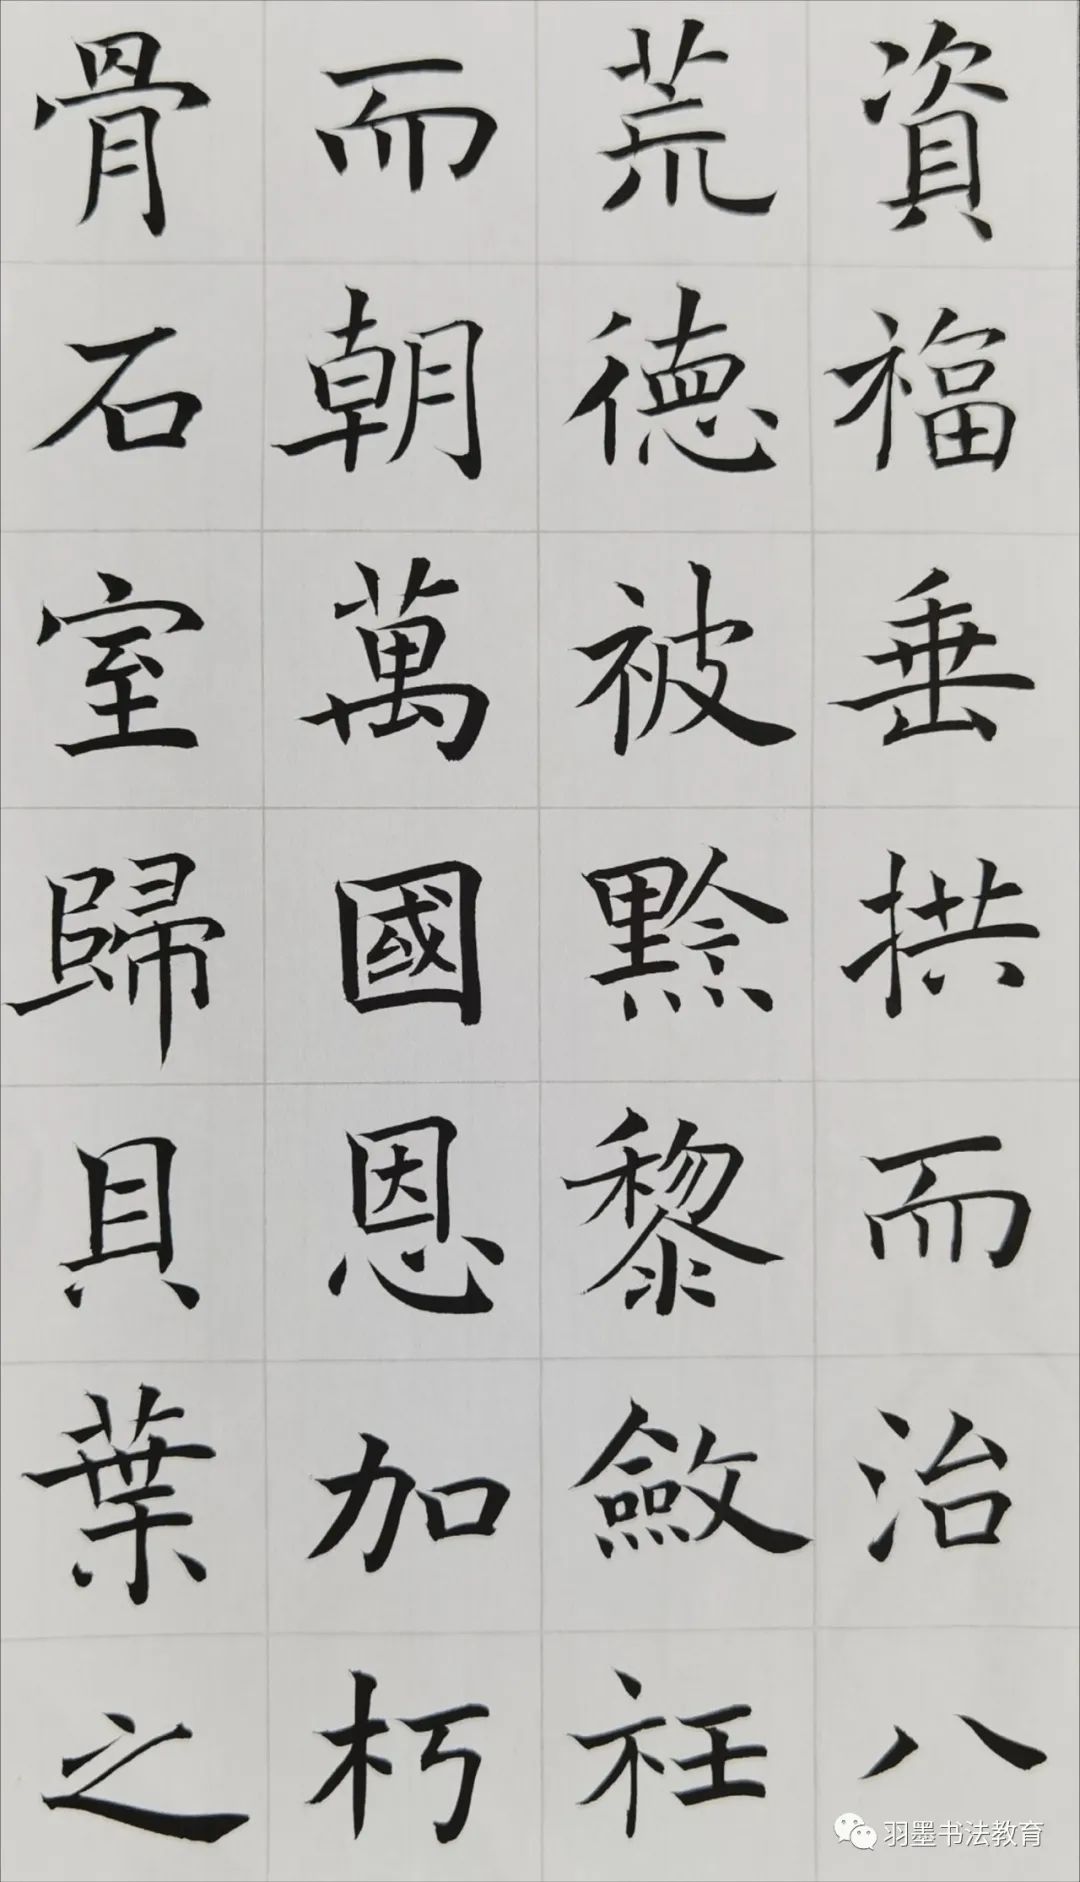 資福垂拱而治八
荒德被黔黎斂衽
而朝萬國恩加朽
骨石室歸貝葉之
羽墨书法教育